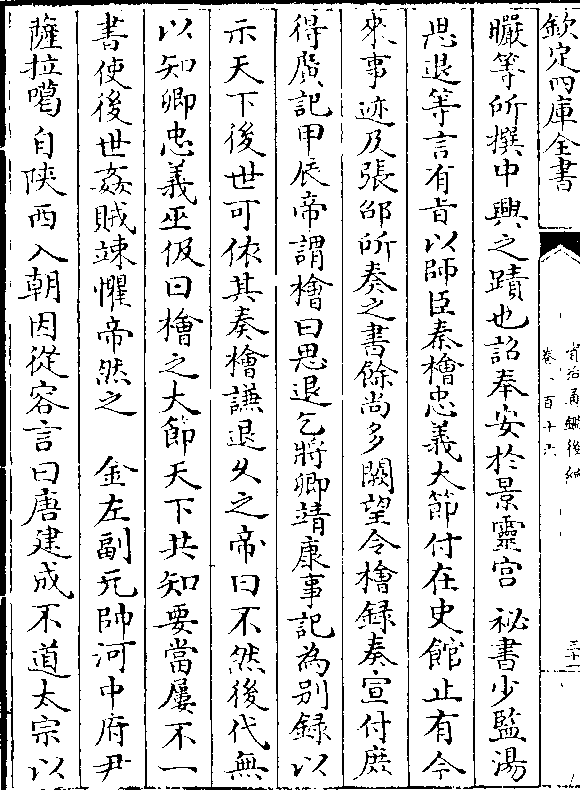 欽定四庫全書
曮等所撰中興之蹟也詔奉安於景靈宮　秘書少監湯
思退等言有旨以師臣秦檜忠義大節付在史館止有今
來事迹及張邵所奏之書餘尚多闕望令檜録奏宣付庶
得廣記甲辰帝謂檜曰思退乞將卿靖康事記為別録以
示天下後世可依其奏檜謙退久之帝曰不然後代無
以知卿忠義巫伋曰檜之大節天下共知要當屢不一
書使後世姦賊竦懼帝然之　金左副元帥河中府尹
薩拉噶自陝西入朝因從容言曰唐建成不道太宗以
資治通鑑後編
卷一百十六